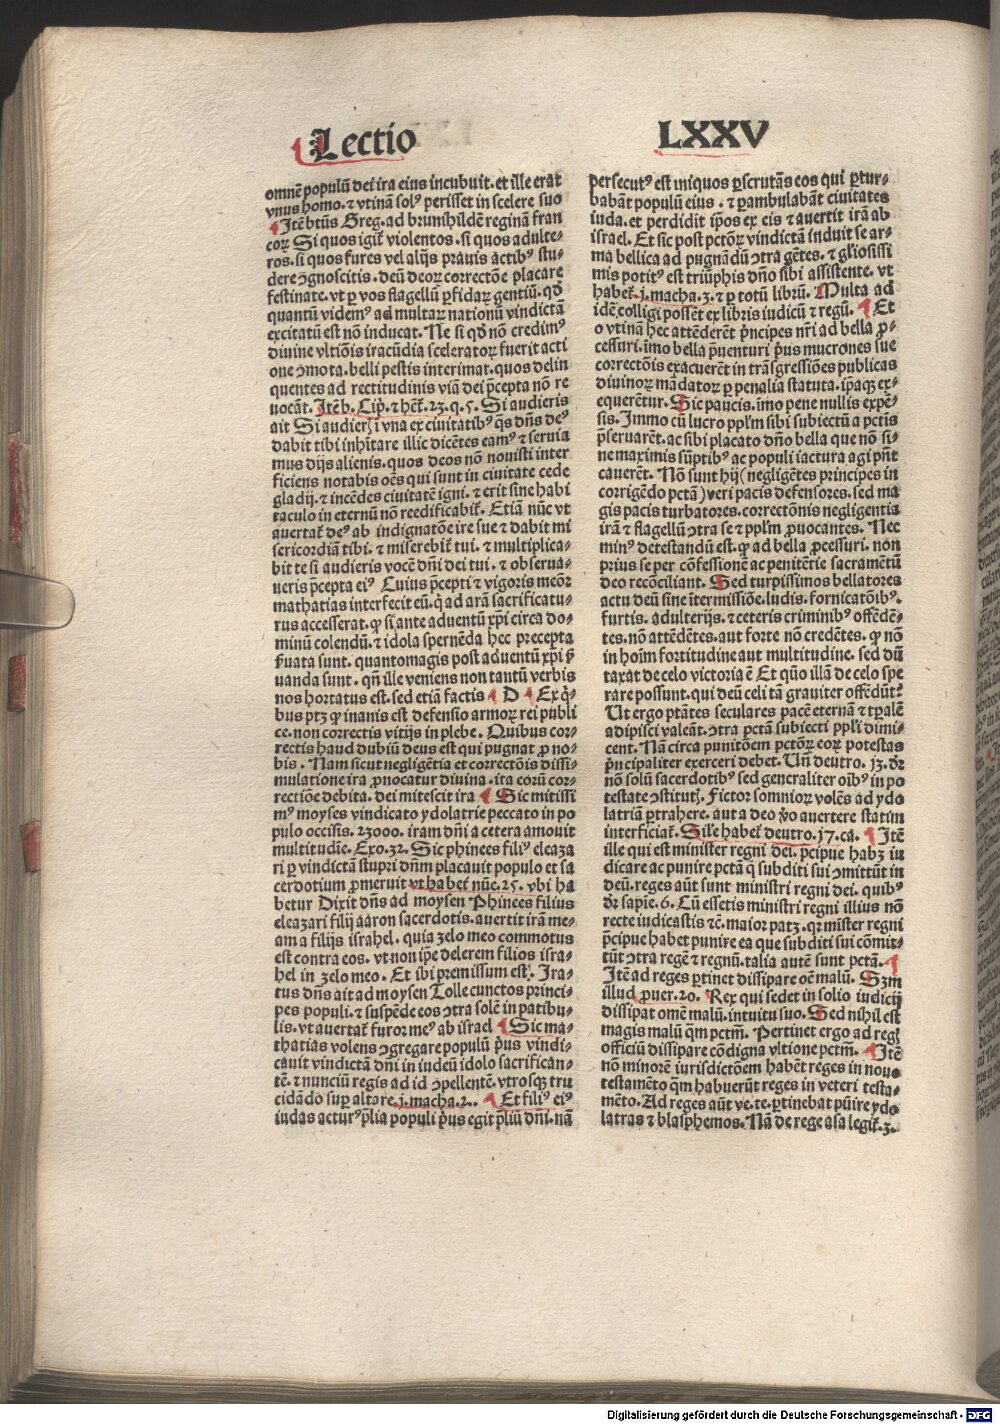 Lectio LXXV
omnē populū dei ira eius incubuit. et ille erat
vnus homo. ⁊ vtinā solꝰ perisset in scelere suo
¶ Itē btūs Greg. ad brunihildē reginā fran
coꝝ Si quos igiť violentos. si quos adulte⸗
ros. si quos fures vel alijs prauis actibꝰ stu⸗
dere ↄgnoscitis. deū deoꝝ correctōe placare
festinate. vt ꝑ vos flagellū ꝑfidaꝝ gentiū. qđ
quantū videmꝰ ad multaꝝ nationū vindictā
excitatū est nō inducat. Ne si qđ nō credimꝰ
diuine vltiōis iracūdia sceleratoꝝ fuerit acti
one ↄmota. belli pestis interimat. quos delin
quentes ad rectitudinis viā dei p̄cepta nō re
uocāt. Itē b. Cip̄. ⁊ heť. 23. q. 5. Si audieris
ait Si audieꝝ ī vna ex ciuitatibꝰ q̄s dn̄s deꝰ
dabit tibi inhītare illic dicētes eamꝰ ⁊ seruia
mus dijs alienis. quos deos nō nouisti inter
ficiens notabis oēs qui sunt in ciuitate cede
gladij. ⁊ incēdes ciuitatē igni. ⁊ erit sine habi
taculo in eternū nō reedificabiť. Etiā nūc vt
auertať deꝰ ab indignatōe ire sue ⁊ dabit mi
sericordiā tibi. ⁊ miserebiť tui. ⁊ multiplica⸗
bit te si audieris vocē dn̄i dei tui. ⁊ obserua⸗
ueris p̄cepta eiꝰ Cuius p̄cepti ⁊ vigoris meōꝛ
mathatias interfecit eū. q̇ ad arā sacrificatu⸗
rus accesserat. ꝙ si ante aduentū xp̄i circa do⸗
minū colendū. ⁊ idola spernēda hec precepta
ẜuata sunt. quantomagis post aduentū xp̄i ẜ
uanda sunt. qn̄ ille veniens non tantū verbis
nos hortatus est. sed etiā factis ¶ D ¶ Ex q̇⸗
bus ptꝫ ꝙ inanis est defensio armoꝝ rei publi
ce. non correctis vitijs in plebe. Quibus cor⸗
rectis haud dubiū deus est qui pugnat ꝓ no⸗
bis. Nam sicut negligētia et correctōis dissi⸗
mulatione ira ꝓuocatur diuina. ita eorū cor⸗
rectiōe debita. dei mitescit ira ¶ Sic mitissi
mꝰ moyses vindicato ydolatrie peccato in po
pulo occisis. 23000. iram dn̄i a cetera amouit
multitudīe. Exo. 32. Sic phinees filiꝰ eleaza
ri ꝑ vindictā stupri dn̄m placauit populo et sa
cerdotium ꝓmeruit vt habeť nūe. 25. vbi ha
betur Dixit dn̄s ad moysen Phinees filius
eleazari filij aaron sacerdotis. auertit irā me⸗
am a filijs israhel. quia zelo meo commotus
est contra eos. vt non ipe delerem filios isra⸗
hel in zelo meo. Et ibi premissum est. Ira⸗
tus dn̄s ait ad moysen Tolle cunctos princi⸗
pes populi. ⁊ suspēde eos ↄtra solē in patibu⸗
lis. vt auertať furor meꝰ ab israel ¶ Sic ma⸗
thatias volens ↄgregare populū p̄us vindi⸗
cauit vindictā dn̄i in iudeū īdolo sacrifican⸗
tē. ⁊ nunciū regis ad id ↄpellentē. vtrosqꝫ tru
cidādo suꝑ altare. j. macha. 2. ¶ Et filiꝰ eiꝰ
iudas acturꝰ p̄lia populi p̄us egit p̄liū dn̄i. nā
persecutꝰ est iniquos ꝑscrutās eos qui ꝑtur⸗
babāt populū eius. ⁊ ꝑambulabāt ciuitates
iuda. et perdidit ip̄os ex eis ⁊ auertit irā ab
israel. Et sic post pctōꝝ vindictā induit se ar⸗
ma bellica ad pugnādū ↄtra gētes. ⁊ gl̓iosissi
mis potitꝰ est triūphis dn̄o sibi assistente. vt
habeť. j. macha. 3. ⁊ ꝑ totū librū. Multa ad
idē colligi possēt ex libris iudicū ⁊ regū. ¶ Et
o vtinā hec attēderēt p̄ncipes nr̄i ad bella ꝓ⸗
cessuri. īmo bella p̄uenturi p̄us mucrones sue
correctōis exacuerēt in trāsgressiōes publicas
diuinoꝝ mādatoꝝ ꝑ penalia statuta. ip̄aqꝫ ex⸗
equerētur. Sic paucis. īmo pene nullis expē⸗
sis. Immo cū lucro pplm̄ sibi subiectū a pctīs
p̄seruarēt. ac sibi placato dn̄o bella que nō si⸗
ne maximis sūptibꝰ ac populi iactura agi pn̄t
cauerēt. Nō sunt hij (negligētes principes in
corrigēdo pctā) veri pacis defensores. sed ma
gis pacis turbatores. correctōnis negligentia
irā ⁊ flagellū ↄtra se ⁊ pplm̄ ꝓuocantes. Nec
minꝰ detestandū est. ꝙ ad bella ꝓcessuri. non
prius se per cōfessionē ac penitētie sacramētū
deo recōciliant. Sed turpissimos bellatores
actu deū sine ītermissiōe. ludis. fornicatōibꝰ.
furtis. adulterijs. ⁊ ceteris criminibꝰ offēdē⸗
tes. nō attēdētes. aut forte nō credētes. ꝙ nō
in hoīm fortitudine aut multitudine. sed dū
taxat de celo victoria ē Et quō illā de celo spe
rare possunt. qui deū celi tā grauiter offēdūt?
Ut ergo ptātes seculares pacē eternā ⁊ tꝑalē
adipisci valeāt. ↄtra pctā subiecti ppl̓i dimi⸗
cent. Nā circa punitōem pctōꝝ eoꝝ potestas
p̄ncipaliter exerceri debet. Un̄ deutro. 13. dꝛ
nō solū sacerdotibꝰ sed generaliter oībꝰ in po
testate ↄstitutꝭ. Fictor somnioꝝ volēs ad ydo
latriā ꝑtrahere. aut a deo ẜo auertere statim
interficiať. Sil̓e habeť deutro. 17. ca. ¶ Itē
ille qui est minister regni dei. p̄cipue habꝫ iu
dicare ac punire pctā q̄ subditi sui ↄmittūt in
deū. reges aūt sunt ministri regni dei. quibꝰ
dꝛ sapīe. 6. Cū essetis ministri regni illius nō
recte iudicastis ⁊c̄. maior patꝫ. qꝛ mīster regni
p̄cipue habet punire ea que subditi sui cōmit⸗
tūt ↄtra regē ⁊ regnū. talia autē sunt pctā. ¶
Itē ad reges ꝑtinet dissipare oē malū. Scꝫm
illud ꝓuer. 20. Rex qui sedet in solio iudicij
dissipat omē malū. intuitu suo. Sed nihil est
magis malū q̄m pctm̄. Pertinet ergo ad regꝭ
officiū dissipare cōdigna vltione pctm̄. ¶ Itē
nō minorē iurisdictōem habēt reges in nouo
testamēto q̄m habuerūt reges in veteri testa⸗
mēto. Ad reges aūt ve. te. ꝑtinebat pūire ydo
latras ⁊ blasphemos. Nā de rege asa legiť. 3.
Digitalisierung gefördert durch die Deutsche Forschungsgemeinschaft - DFG